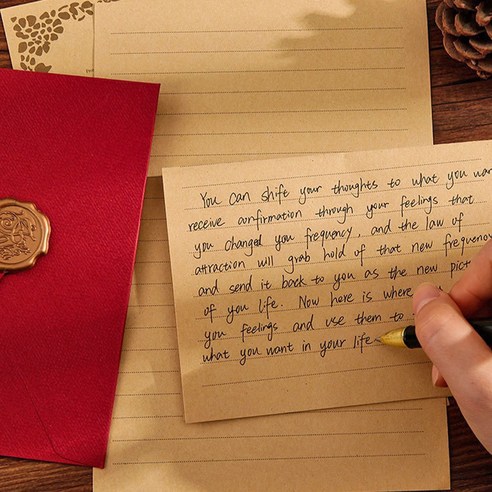 You can shift your thoughts to what you wan
receive confirmation through your feelings that
you changed you frequency, and the law of
attraction will grab hold of that new frequency
and send it back to you as the new pict
of you life. Now here is where
you feelings and use them to
what you want in your life